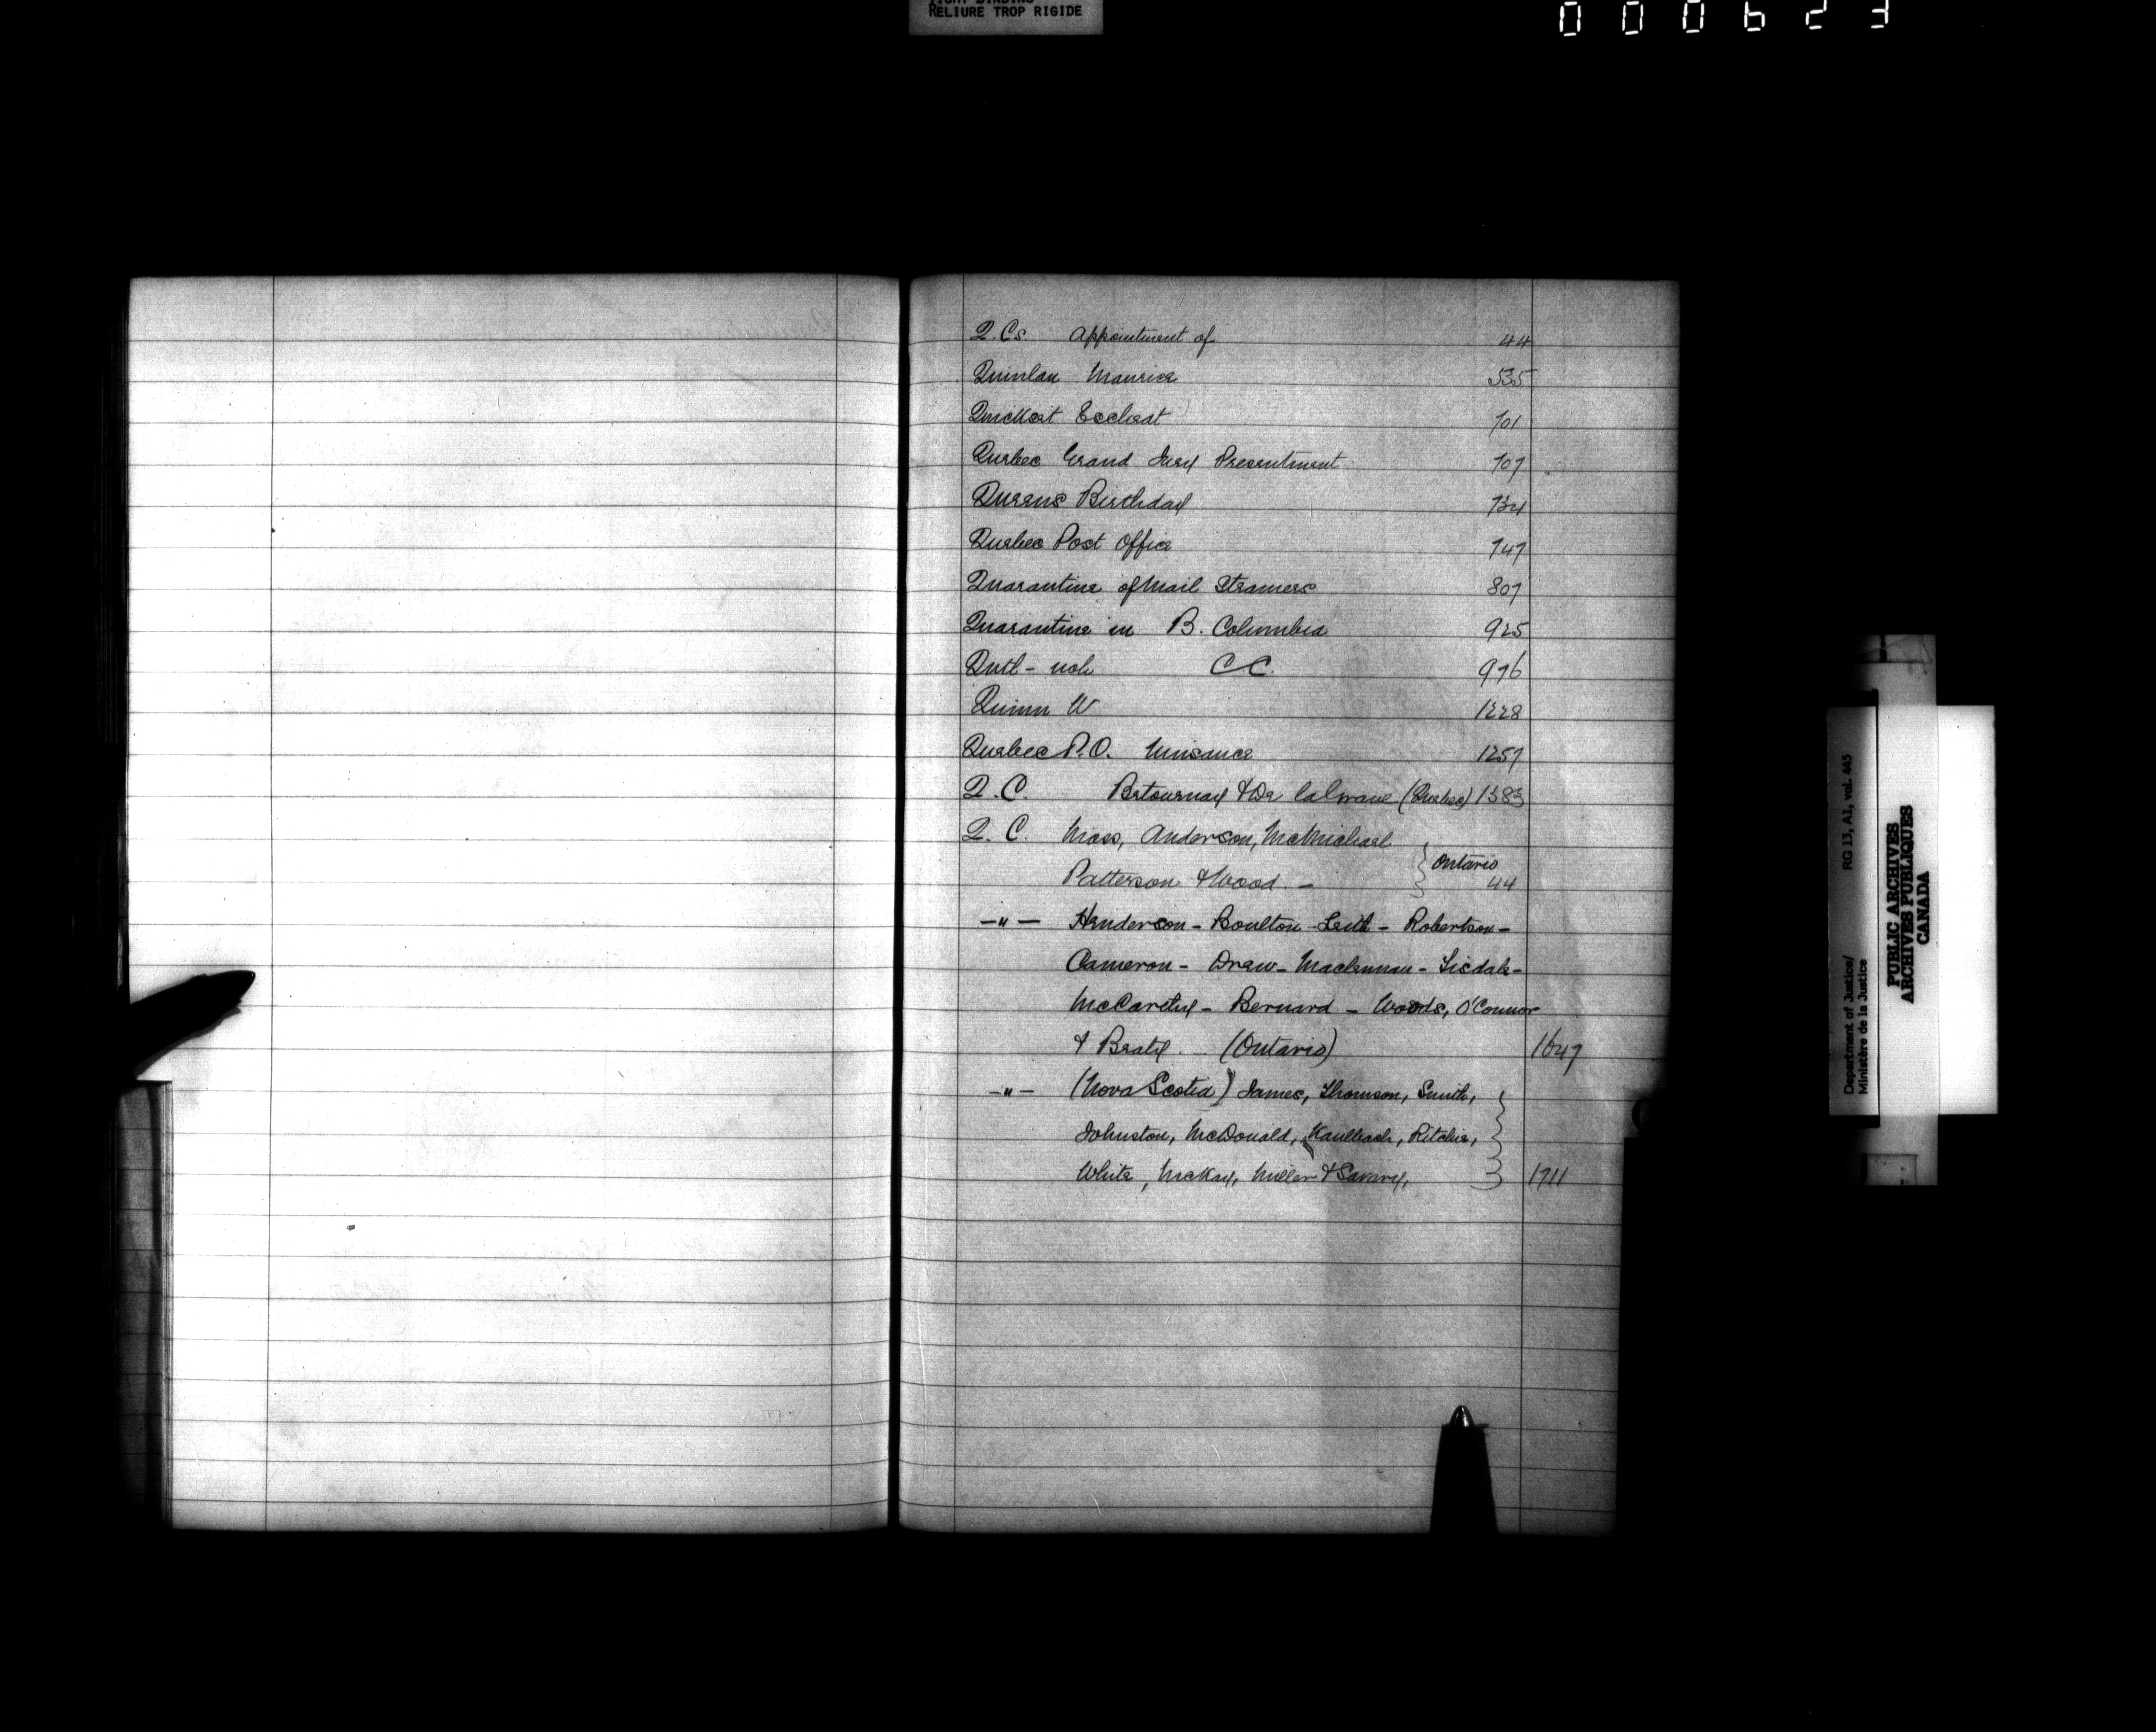 RELIURE TROP RIGIDE
000623
Q.Cs. Appointment of 44
Quinlan Maurice 535
Escheat 701
Quebec Grand Jury Presentment 707
Queens Birthday 734
Quebec Post Office 747
Quarantine of Mail Steamers 807
Quarantine in B. Columbia 925
CC. 976
Quinn W 1228
Quebec P.O. Nuisance 1257
Q.C. Betournay & De (Quebec) 1383
Q.C. Moss, Anderson, McMichael
Patterson & Wood. — } Ontario 44
—"— Henderson - Boulton - Leith - Robertson -
Cameron - Drew - Maclennan - Tisdale -
McCarthy - Bernard - Woods, O'Connor
& Beaty. — (Ontario) 1647
—"— (Nova Scotia) James, Thomson, Smith,
Johnston, McDonald, Kaulback, Ritchie,
White, McKay, Miller & Savary, } 1711
Department of Justice/ RG 13, A1, vol. 445
Ministère de la Justice
PUBLIC ARCHIVES
ARCHIVES PUBLIQUES
CANADA